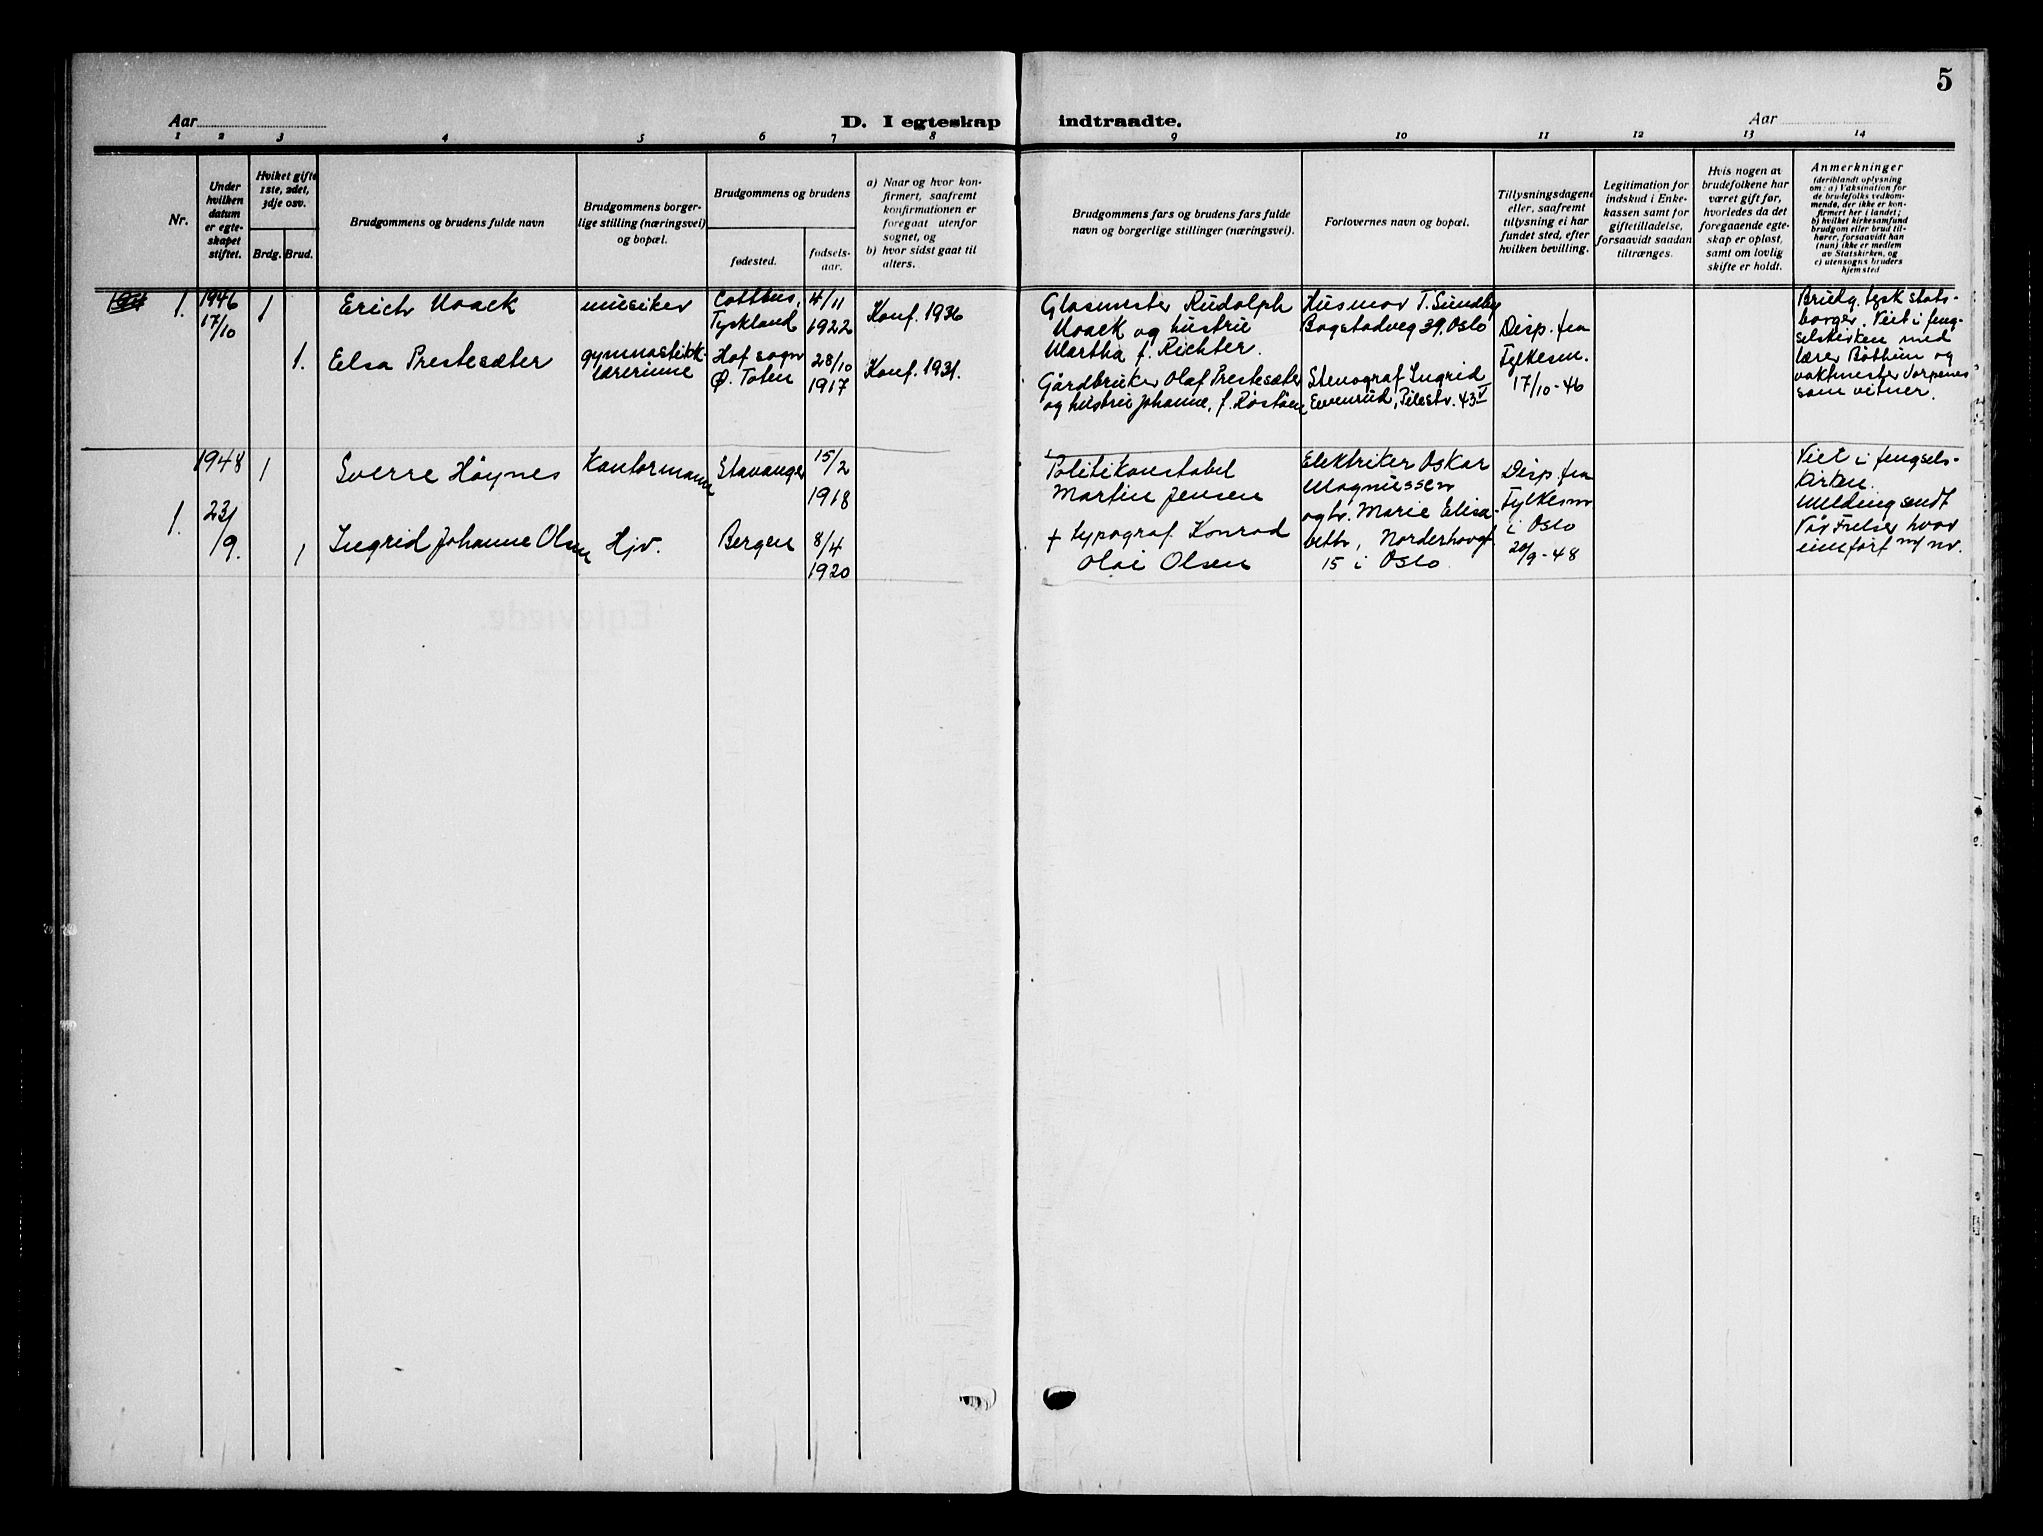 5
Aar
D. I egteskap indtraadte.
Aar
1 2 3 4 5 6 7 8 9 10 11 12 13 14
Nr.
Under
hvilken
datum
er egte-
skapet
stiftet.
Hvilket gifte
1ste, 2det,
3dje osv.
Brdg. Brud.
Brudgommens og brudens fulde navn
Brudgommens borger-
lige stilling (næringsvei)
og bopæl.
Brudgommens og brudens
fødested.
fødsels-
aar.
a) Naar og hvor kon-
firmert, saafremt
konfirmationen er
foregaat utenfor
sognet, og
b) hvor sidst gaat til
alters.
Brudgommens fars og brudens fars fulde
navn og borgerlige stillinger (næringsvei).
Forlovernes navn og bopæl.
Tillysningsdagene
eller, saafremt
tillysning ei har
fundet sted, efter
hvilken bevilling.
Legitimation for
indskud i Enke-
kassen samt for
giftetilladelse,
forsaavidt saadan
tiltrænges.
Hvis nogen av
brudefolkene har
været gift før,
hvorledes da det
foregaaende egte-
skap er opløst,
samt om lovlig
skifte er holdt.
Anmerkninger
(deriblandt oplysning
om: a) Vaksination for
de brudefolks vedkom-
mende, der ikke er kon-
firmert her i landet;
b) hvilket kirkesamfund
brudgom eller brud til-
hører, forsaavidt han
(hun) ikke er medlem
av Statskirken, og
c) utensogns bruders
hjemsted
1.
1946
17/10
1
Erich Noack
musiker
Cottbus,
Tyskland
4/11
1922
Konf. 1936
Glasmester Rudolph
Noack og hustru
Martha f. Richter.
Husmor T. Sundby
Bogstadveg 39, Oslo
Disp. fra
Fylkesm.
17/10-46
Brudg. tysk stats-
borger. Viet i feng-
selskirken med
lærer Bøthun og
vaktmester Torpenes
som vitner.
1.
Elsa Prestesæter
gymnastikk-
lærerinne
Hof sogn
Ø. Toten
28/10
1917
Konf. 1931.
Gårdbruker Olaf Prestesæter
og hustru Johanne, f. Røstøen
Stenograf Ingrid
Evenrud, Pilestr. 43 V
1.
1948
23/
/9.
1
Sverre Høynes
Kontormann
Stavanger
15/2
1918
Politikonstabel
Martin Jensen
Elektriker Oskar
Magnussen
og hr. Marie Elisa-
beth, Norderhovgt.
15 i Oslo
Disp. fra
Fylkesm
i Oslo
20/9-48
Viet i fengsels-
kirken.
Melding sendt
Vår Frelser hvor
innført m/ nr.
1
Ingrid Johanne Olsen
Hjv.
Bergen
8/4
1920
+ typograf Konrad
Olai Olsen